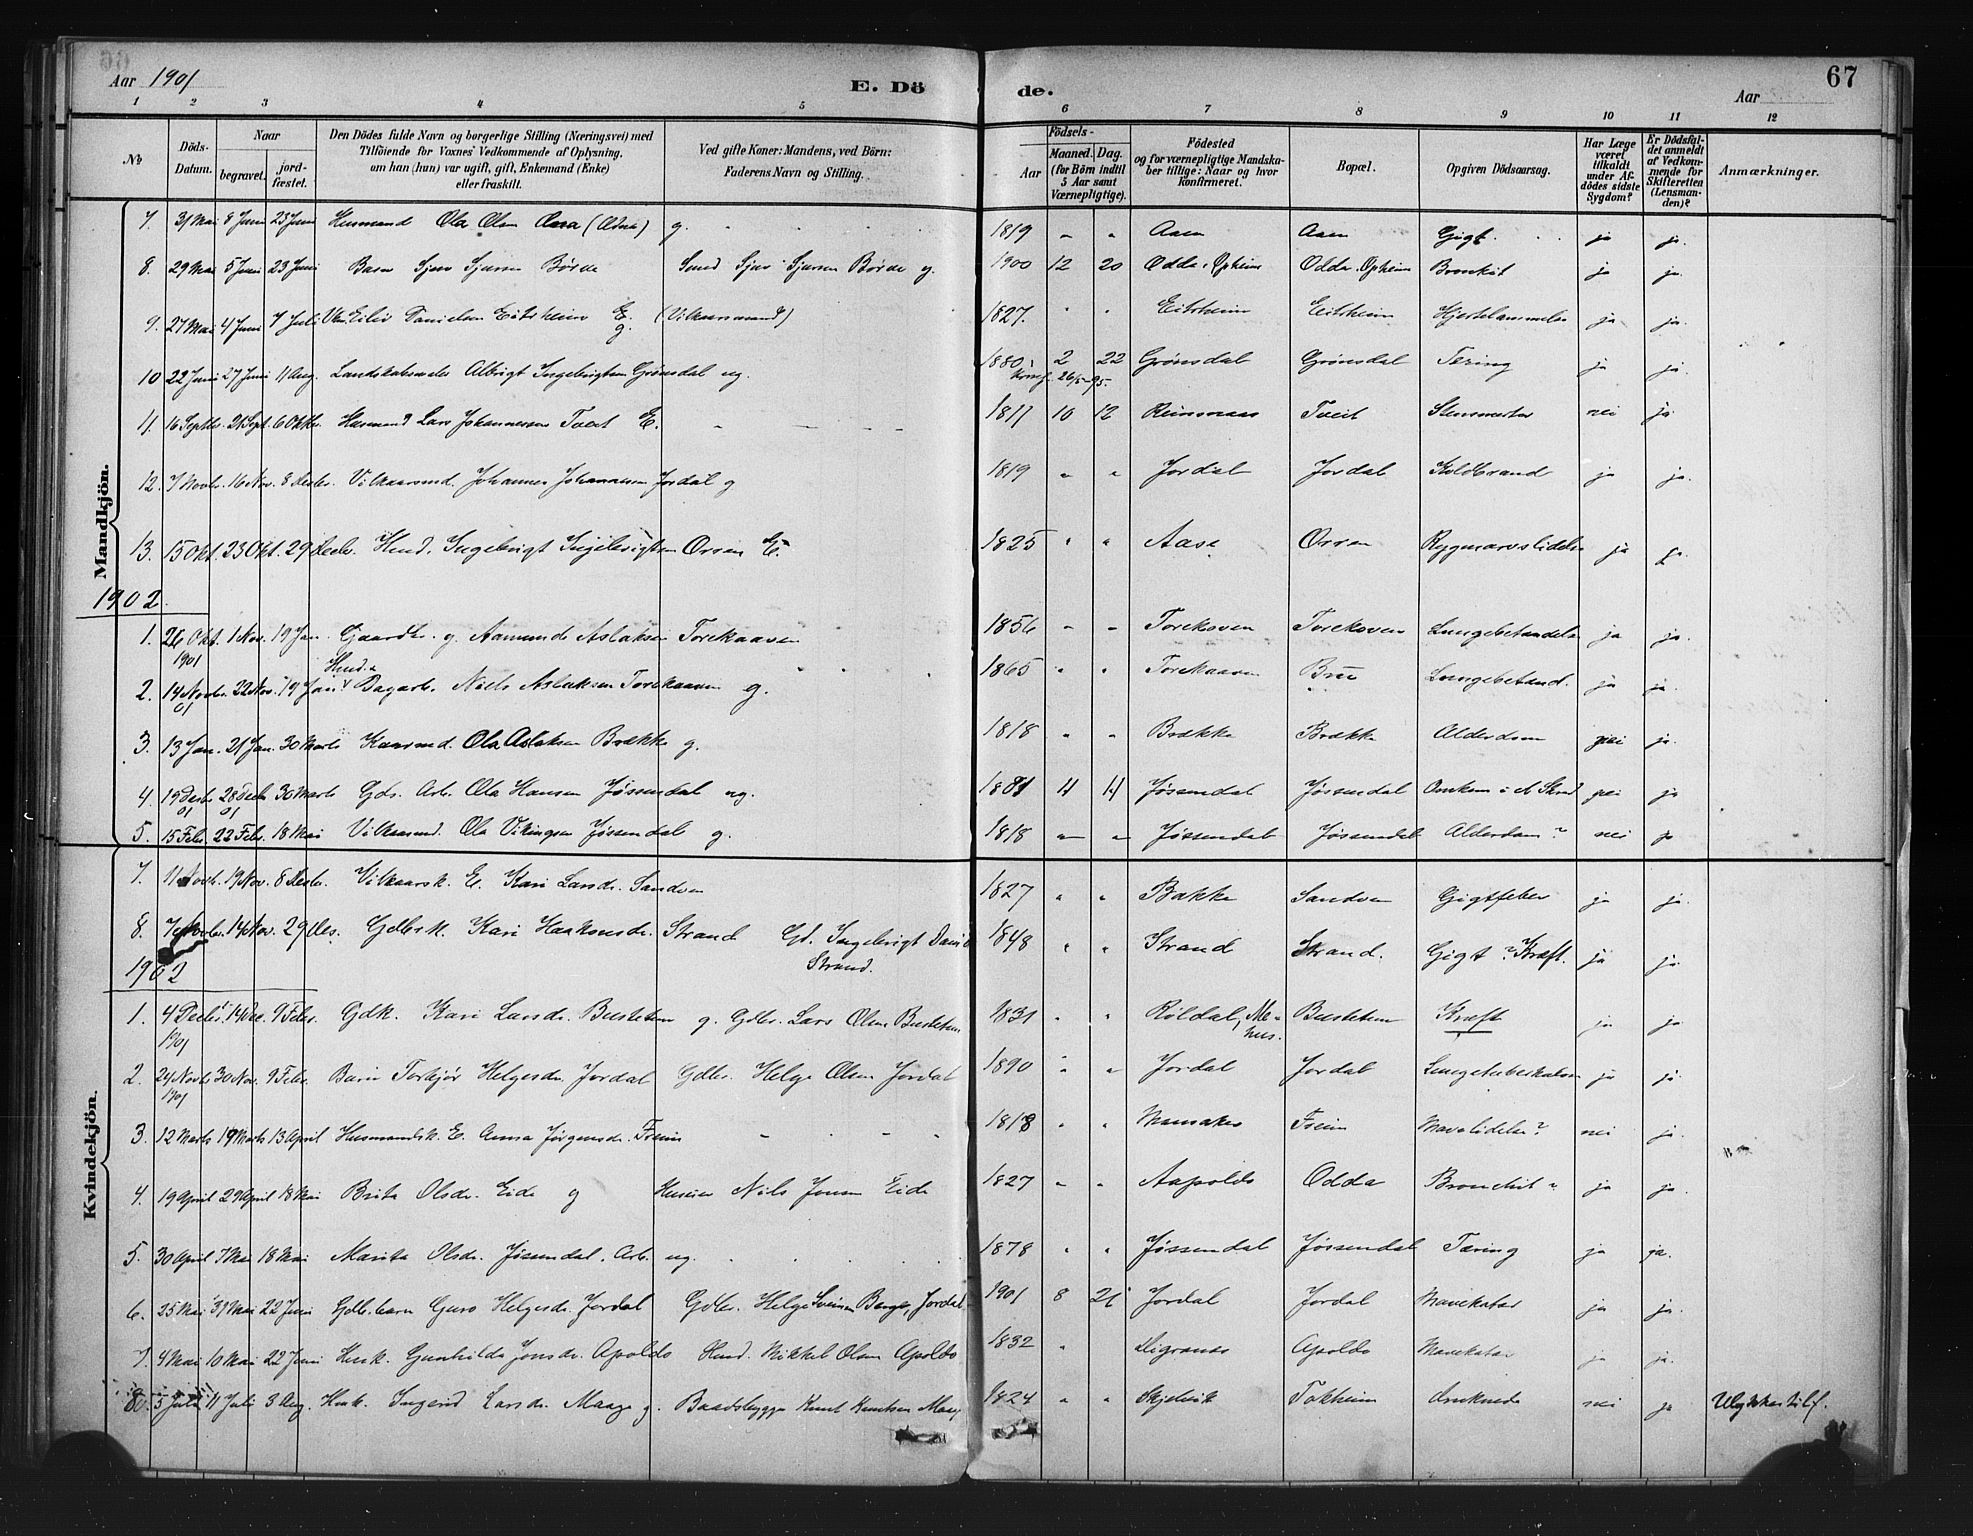 Aar 1901
E. Döde.
Aar
67
1 2 3 4 5 6 7 8 9 10 11 12
No
Döds-Datum.
Naar
begravet.
jordfæstet.
Den Dödes fulde Navn og borgerlige Stilling (Næringsvei) med
Tilföiende for Voxnes Vedkommende af Oplysning,
om han (hun) var ugift, gift, Enkemand (Enke)
eller fraskilt.
Ved gifte Koner: Mandens, ved Börn:
Faderens Navn og Stilling.
Födsels-
Aar
Maaned.
Dag.
(for Börn indtil 5 Aar samt Værnepligtige).
Födested
og for værnepligtige Mandskaber tillige: Naar og hvor Konfirmeret.
Bopæl.
Opgiven Dödsaarsag.
Har Læge været tilkaldt under Afdödes sidste Sygdom?
Er Dödsfaldet anmeldt af Vedkommende for Skifteretten (Lensmanden)?
Anmærkninger.
Mandkjön.
7. 31 Mai 8 Juni 23 Juni Husmand Ola Olsen g. 1819 " " Aaen Aaen Gigt. ja ja.
8. 29 Mai 5 Juni 23 Juni Barn Sjur Sjursen Börde Smed Sjur Sjursen Börde g. 1900 12 20 Odda, Opheim Odda, Opheim Bronkit ja ja.
9. 27 Mai 4 Juni 7 Juli Eiliv Danielsen Eitrheim E. g. (Vilkaarsmand) 1827. " " Eitrheim Eitrheim ja ja.
10 22 Juni 27 Juni 11 Aug. Albrigt Ingebrigtsen Grönsdal ug. 1880 2 22 Konf. 26/5-95. Grönsdal Grönsdal Tæring ja ja.
11. 16 Septbr. 21 Sept. 6 Oktbr. Husmand Lars Johannessen Tveit E. 1817 10 12 Tveit nei ja
12. 7 Novbr. 16 Nov. 8 Decbr. Vilkaarsmd. Johannes Johannesen Jordal g 1819 " " Jordal Jordal Koldbrand ja ja.
13. 15 Okt. 23 Okt. 29 Decbr. Husd. Ingebrigt Ingebrigtsen E. 1825 " " Aase Rygmarvslidelse ja ja.
1902.
1. 26 Okt. 1901 1 Nov. 19 Jan. Gaardbr. g. Aamund Aslaksen Torekaaven 1856 " " Torekoven Torekoven ja ja.
2. 14 Novbr. 01 22 Nov. 19 Jan Niels Aslaksen Torekaaven g. 1865 " " Torekaaven ja ja.
3. 13 Jan. 21 Jan. 30 Marts Ola Aslaksen Brække g. 1818 " " Brække Brække Alderdom nei ja.
4. 19 Decbr 01 28 Decbr 01 30 Marts Gds. Arb. Ola Hansen Jössendal ug. Jössendal Jössendal nei ja
5. 15 Febr. 22 Febr. 18 Mai Vilkaarsmd. Ola Vikingsen Jössendal g. 1818 " " Jössendal Jössendal Alderdom? nei ja
Kvindekjön.
7. 11 Novb. 19 Nov. 8 Decbr. Vilkaarsk. E. Kari Larsdr. Sandven 1827 " " Bakke Sandven Gigtfeber ja ja.
8. 7 Novbr. 14 Nov. 29 Dec. Gdbrsk. Kari Haakonsdr. Strand Gd. Ingebrigt Strand. 1848 " " Strand Strand. Gigt? Kræft. ja ja.
1902
1. 4 Decbr. 1901 14 Dec. 9 Febr. Gdk. Kari Larsdr. Bustetun g. Gdbr. Lars Olsen Bustetun 1831 " " Röldal, Bustetun Kræft ja ja
2. 24 Novbr. 1901 30 Nov. 9 Febr. Barn Torbjör Helgesdr. Jordal Gdbr. Helge Olsen Jordal 1890 " " Jordal Jordal Lungetuberkulose ja ja.
3. 12 Marts 19 Marts 13 April Husmandsk. E. Anna Jörgensdr. Freim 1818 " " Freim Mavelidelse? nei ja.
4. 19 April 29 April 18 Mai Brita Olsdr. Eide g Nils Jonsen Eide 1827 " " Aapoldo Odda Bronchit " ja ja.
5. 30 April 7 Mai 18 Mai Marita Olsdr. Jössendal. Arb. ug. 1878 " " Jössendal Jössendal Tæring ja ja.
6. 25 Mai 31 Mai 22 Juni Gdbr.barn Guro Helgesdr. Jordal Gdbr. Helge Jordal 1901 8 21 Jordal Jordal Mavekatar ja ja.
7. 4 Mai 10 Mai 22 Juni Husk. Gunhilda Jonsdr. Apoldo Husd. Mikkel Olsen Apoldo 1832 " Apoldo Mavekatar ja ja.
8. 5 Juli 11 Juli 3 Aug. Husk. Ingerid Larsdr. Maage g. Baadsbygger Knut Knutsen 1824 " " Skjelvik Tokheim Druknede nei ja Ulykkestilf.